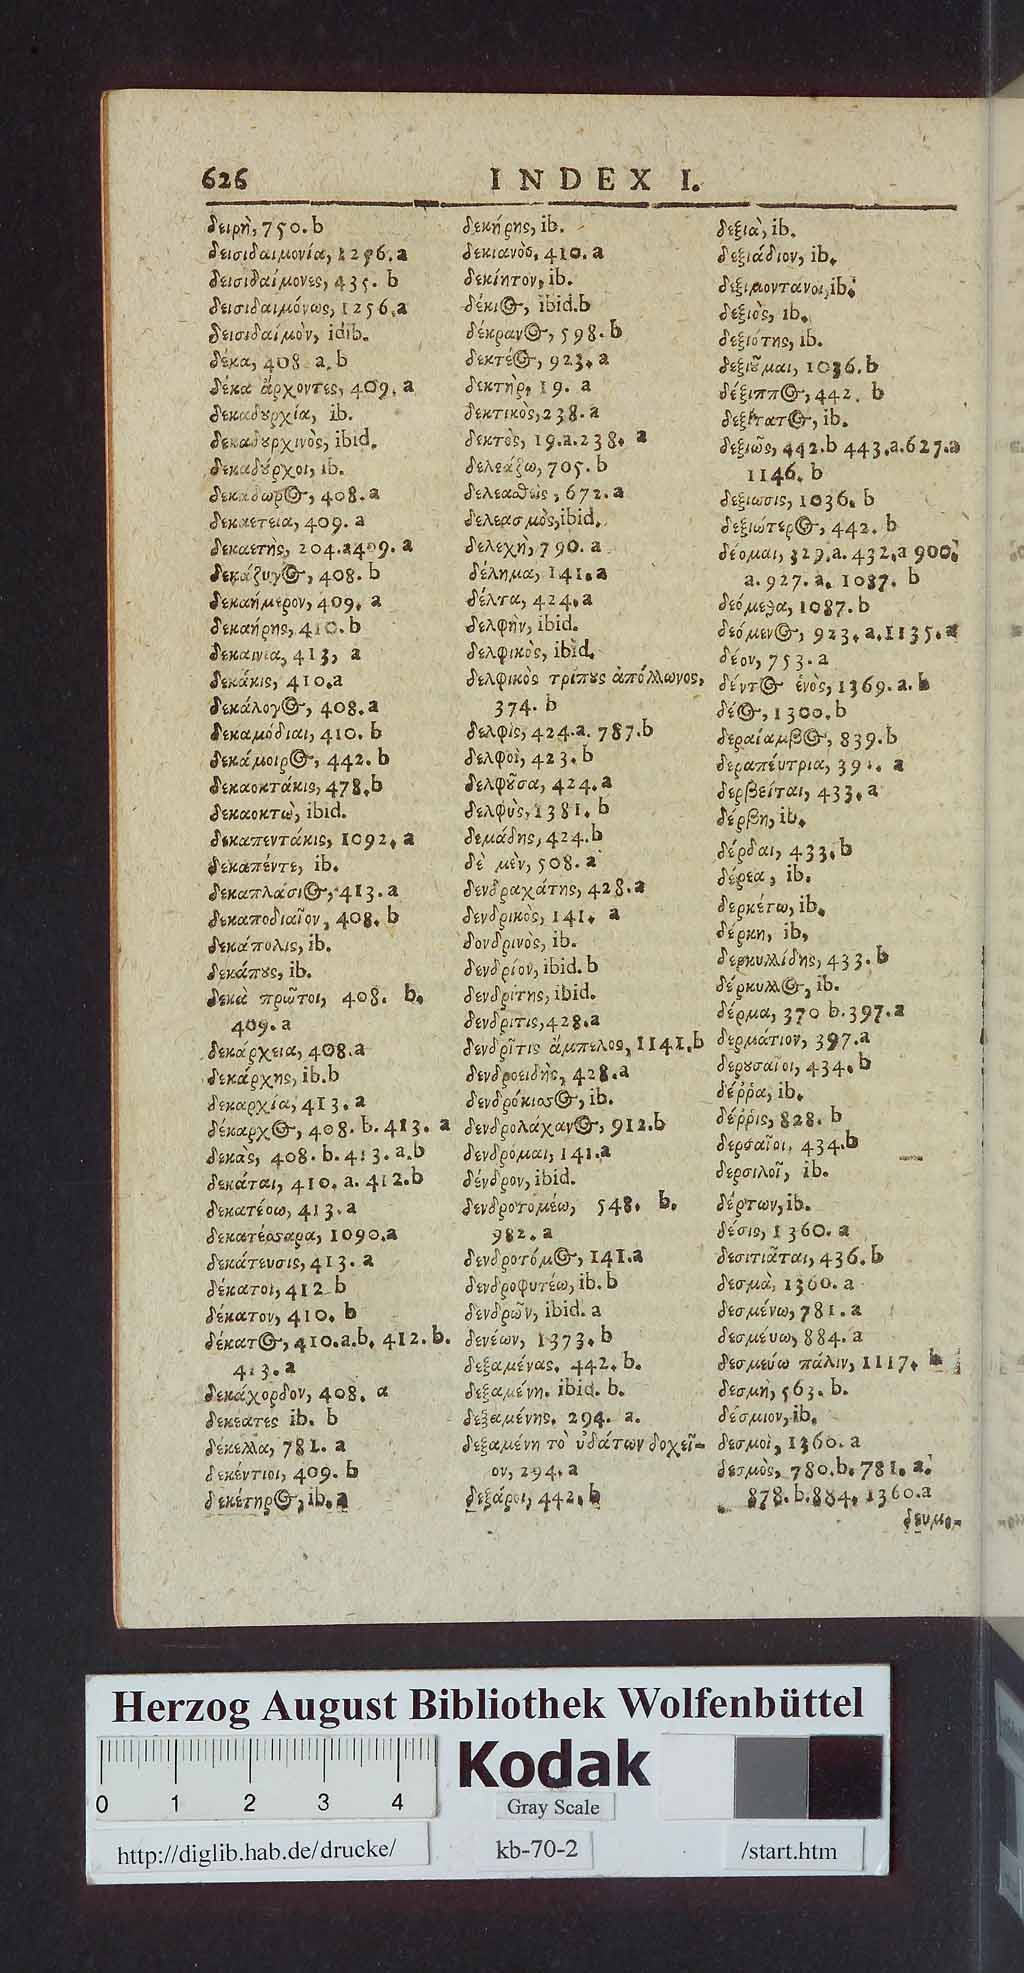 626 INDEX I.
δειρὴ, 750. b
δεισιδαιμονία, 1256. a
δεισιδαίμονες, 435. b
δεισιδαιμόνως, 1256. a
δεισιδαίμὸν, idib.
δέκα, 408. a. b
δέκα ἄρχοντες, 409. a
δεκαδȣρχία, ib.
δεκαδȣρχινὸς, ibid.
δεκαδȣ́ρχοι, ib.
δεκάδωρος, 408. a
δεκαετεια, 409. a
δεκαετὴς, 204. a 409. a
δεκάζυγος, 408. b
δεκαήμερον, 409. a
δεκαήρης, 410. b
δεκαινία, 413, a
δεκάκις, 410. a
δεκάλογος, 408. a
δεκαμόδιαι, 410. b
δεκάμοιρος, 442. b
δεκαοκτάκις, 478. b
δεκαοκτὼ, ibid.
δεκαπεντάκις, 1092. a
δεκαπέντε, ib.
δεκαπλάσιος, 413. a
δεκαποδιαῖον, 408. b
δεκάπολις, ib.
δεκάπȣς, ib.
δεκὰ πρῶτοι, 408. b.
409. a
δεκάρχεια, 408. a
δεκάρχης, ib. b
δεκαρχία, 413. a
δέκαρχος, 408. b. 413. a
δεκὰς, 408. b. 413. a. b
δεκάται, 410. a. 412. b
δεκατέσω, 413. a
δεκατέρσαρα, 1090. a
δεκάτευσις, 413. a
δέκατοι, 412 b
δέκατον, 410. b
δέκατος, 410. a. b. 412. b.
413. a
δεκάχορδον, 408. a
δεκέατες ib. b
δέκελλα, 781. a
δεκέντιοι, 409. b
δεκέτηρος, ib. a
δεκήρης, ib.
δεκιανὸς, 410. a
δεκίητον, ib.
δέκιος, ibid. b
δέκρανος, 598. b
δεκτέος, 923. a
δεκτὴρ, 19. a
δεκτικὸς, 238. a
δεκτὸς, 19. a. 238. a
δελεάζω, 705. b
δελεαθεὶς, 672. a
δελεασμὸς, ibid.
δελεχὴ, 790. a
δέλημα, 141. a
δέλτα, 424. a
δελφὴν, ibid.
δελφικὸς, ibid.
δελφικὸς τρίπȣς ἀπόλλωνος,
374. b
δελφὶς, 424. a. 787. b
δελφοὶ, 423. b
δελφȣ͂σα, 424. a
δελφὺς, 1381. b
δεμάδης, 424. b
δὲ μὲν, 508. a
δενδραχάτης, 428. a
δενδρικὸς, 141. a
δονδρινὸς, ib.
δενδρίον, ibid. b
δενδρίτης, ibid.
δενδρῖτις, 428. a
δενδρῖτις ἄμπελος, 1141. b
δενδροειδὴς, 428. a
δενδρόκισσος, ib.
δενδρολάχανος, 912. b
δενδρόμαι, 141. a
δένδρον, ibid.
δενδροτομέω, 548. b.
982. a
δενδροτόμος, 141. a
δενδροφυτέω, ib. b
δενδρῶν, ibid. a
δενέων, 1373. b
δεξαμένας, 442. b.
δεξαμένη. ibid. b.
δεξαμένης. 294. a.
δεξαμένη τὸ ὑδάτων δοχεῖ-
ον, 294. a
δεξάροι, 442. b
δεξιὰ, ib.
δεξιάδιον, ib.
δεξιμοντανοι, ib.
δεξιὸς, ib.
δεξιότης, ib.
δεξιȣ͂μαι, 1036. b
δέξιππος, 442. b
δεξίτατος, ib.
δεξιῶς, 442. b 443. a. 627. a
1146. b
δεξίωσις, 1036. b
δεξιώτερος, 442. b
δέομαι, 329. a. 432. a 900.
a. 927. a. 1087. b
δεόμεθα, 1087. b
δεόμενος, 923. a. 1135. a
δέον, 753. a
δέντος ἑνὸς, 1369. a. b
δέος, 1300. b
δεραίαμβος, 839. b
δεραπέυτρια, 391. a
δερβεῖται, 433. a
δέρβη, ib.
δέρδαι, 433. b
δέρεα, ib.
δερκέτω, ib.
δέρκη, ib,
δερκυλλίδης, 433. b
δέρκυλλος, ib.
δέρμα, 370 b. 397. a
δερμάτιον, 397. a
δερȣσαῖοι, 434. b
δέῤῥα, ib.
δέῤῥις, 828. b
δερσαῖοι, 434. b
δερσιλοῖ, ib.
δέρτων, ib.
δέσις, 1360. a
δεσιτιᾶται, 436. b
δεσμὰ, 1360. a
δεσμένω, 781. a
δεσμέυω, 884. a
δεσμεύω πάλιν, 1117. b
δεσμὴ, 563. b.
δέσμιον, ib.
δεσμοὶ, 1360. a
δεσμὸς, 780. b. 781. a.
878. b. 884. 1360. a
δευμο-
Herzog August Bibliothek Wolfenbüttel
0 1 2 3 4
Kodak
Gray Scale
http://diglib.hab.de/drucke/ kb-70-2 /start.htm